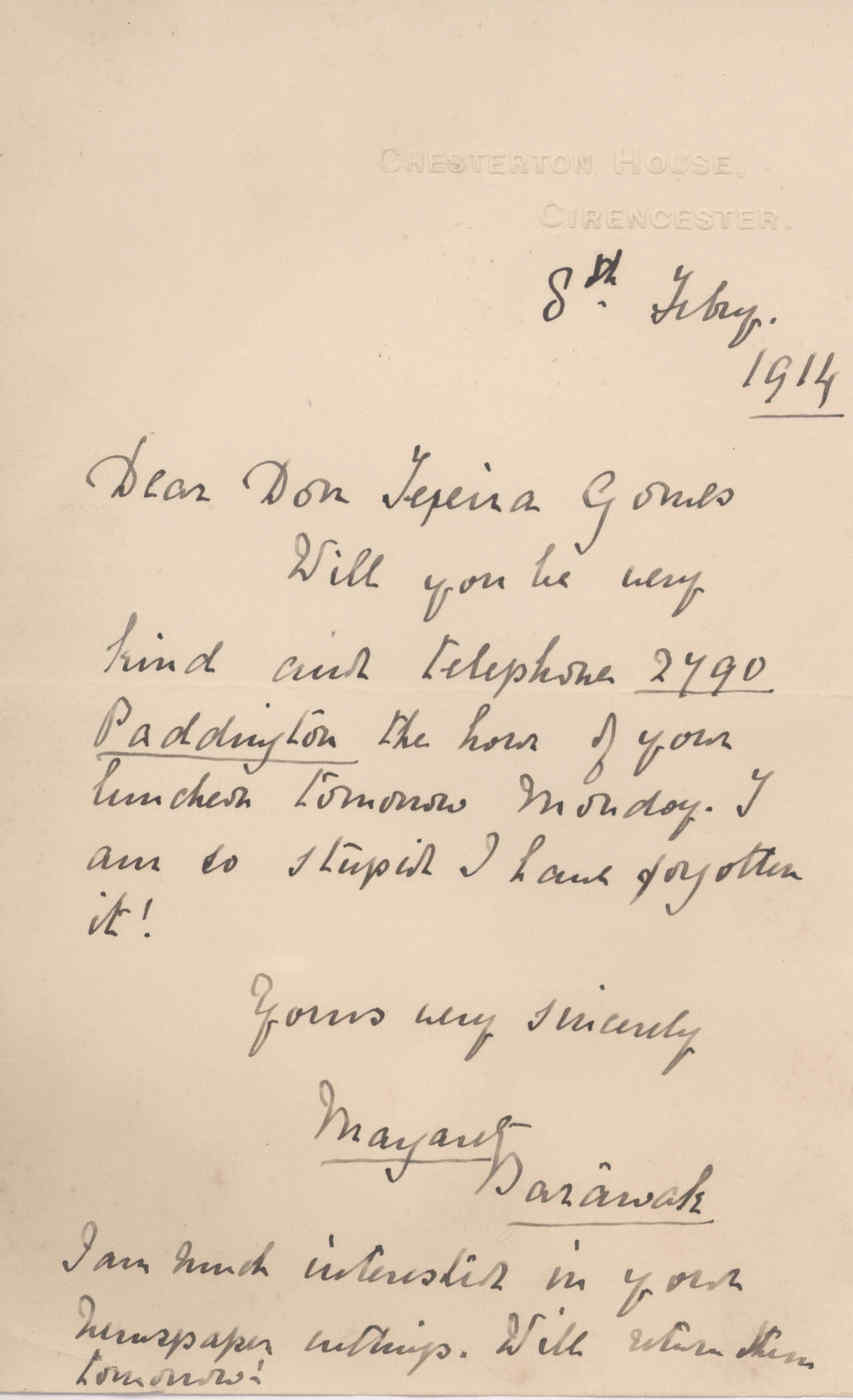 CHESTERTON HOUSE,
CIRENCESTER.
8th Feby.
1914
Dear Don Texeira Gomes
Will you be very
kind and telephone 2790
Paddington the hour of your
luncheon tomorrow Monday. I
am so stupid I have forgotten
it!
Yours very sincerely
Margaret
Sarâwak
I am much interested in your
newspaper cuttings. Will return them
tomorrow!